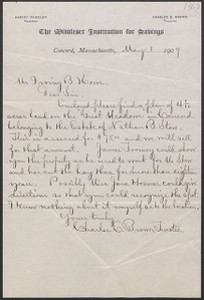 The Middlesex Institution for Savings
Concord, Massachusetts, May 1 1907
Dear Sir:
Enclosed please find a plan of 4½
acres land on the Great Meadows in Concord
belonging to the Estate of Nathan B. Stow.
This is assessed for and we will sell
for that amount. James could show
you the property as he used to work for Mr Stow
and cut the hay there for more than eighteen
years. Possibly Miss Jane Hosmer could give
directions so that you could recognize the spot,
I know nothing about it myself as to the location,
Yours truly
Charles E. Brown Trustee